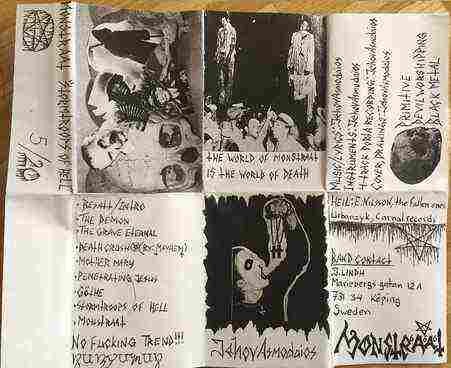 MONSTRAAT
STORMTROOPS OF HELL
5/20
THE WORLD OF MONSTRAAT
IS THE WORLD OF DEATH
MUSIC/LYRICS: JehovAsmodaios
INSTRUMENTS: JehovAsmodaios
COVER, DRAWINGS: JehovAsmodaios
PRIMITIVE
DEVILWORSHIPPING
BLACK METAL
• BESATT/INTRO
• THE DEMON
• THE GRAVE ETERNAL
• DEATHCRUSH (MAYHEM)
• MOTHER MARY
• PENETRATING JESUS
• GÖTHE
• STORMTROOPS OF HELL
• MONSTRAAT
NO FUCKING TREND!!!
JehovAsmodaios
HEIL: E. Nilsson, the fallen ones
Urbanzyk, Carnal records
BAND CONTACT
B. LINDH
Mariebergs gatan 12A
731 34 Köping
Sweden
MONSTRAAT